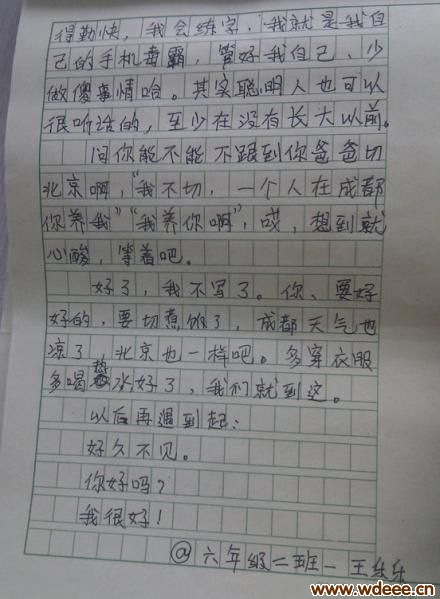 得勤快，我会练字，我就是我自
己的手机毒霸，管好我自己、少
做傻事情哈。其实聪明人也可以
很听话的，至少在没有长大以前。
问你能不能不跟到你爸爸切
北京啊，“我不切，一个人在成都
你养我”“我养你啊”，哎，想到就
心酸，等着吧。
好了，我不写了。你、要好
好的，要切煮饭了，成都天气也
凉了，北京也一样吧。多穿衣服
多喝热水好了，我们就到这。
以后再遇到起：
好久不见。
你好吗？
我很好！
@六年级二班一王乐乐
www.wdeee.cn